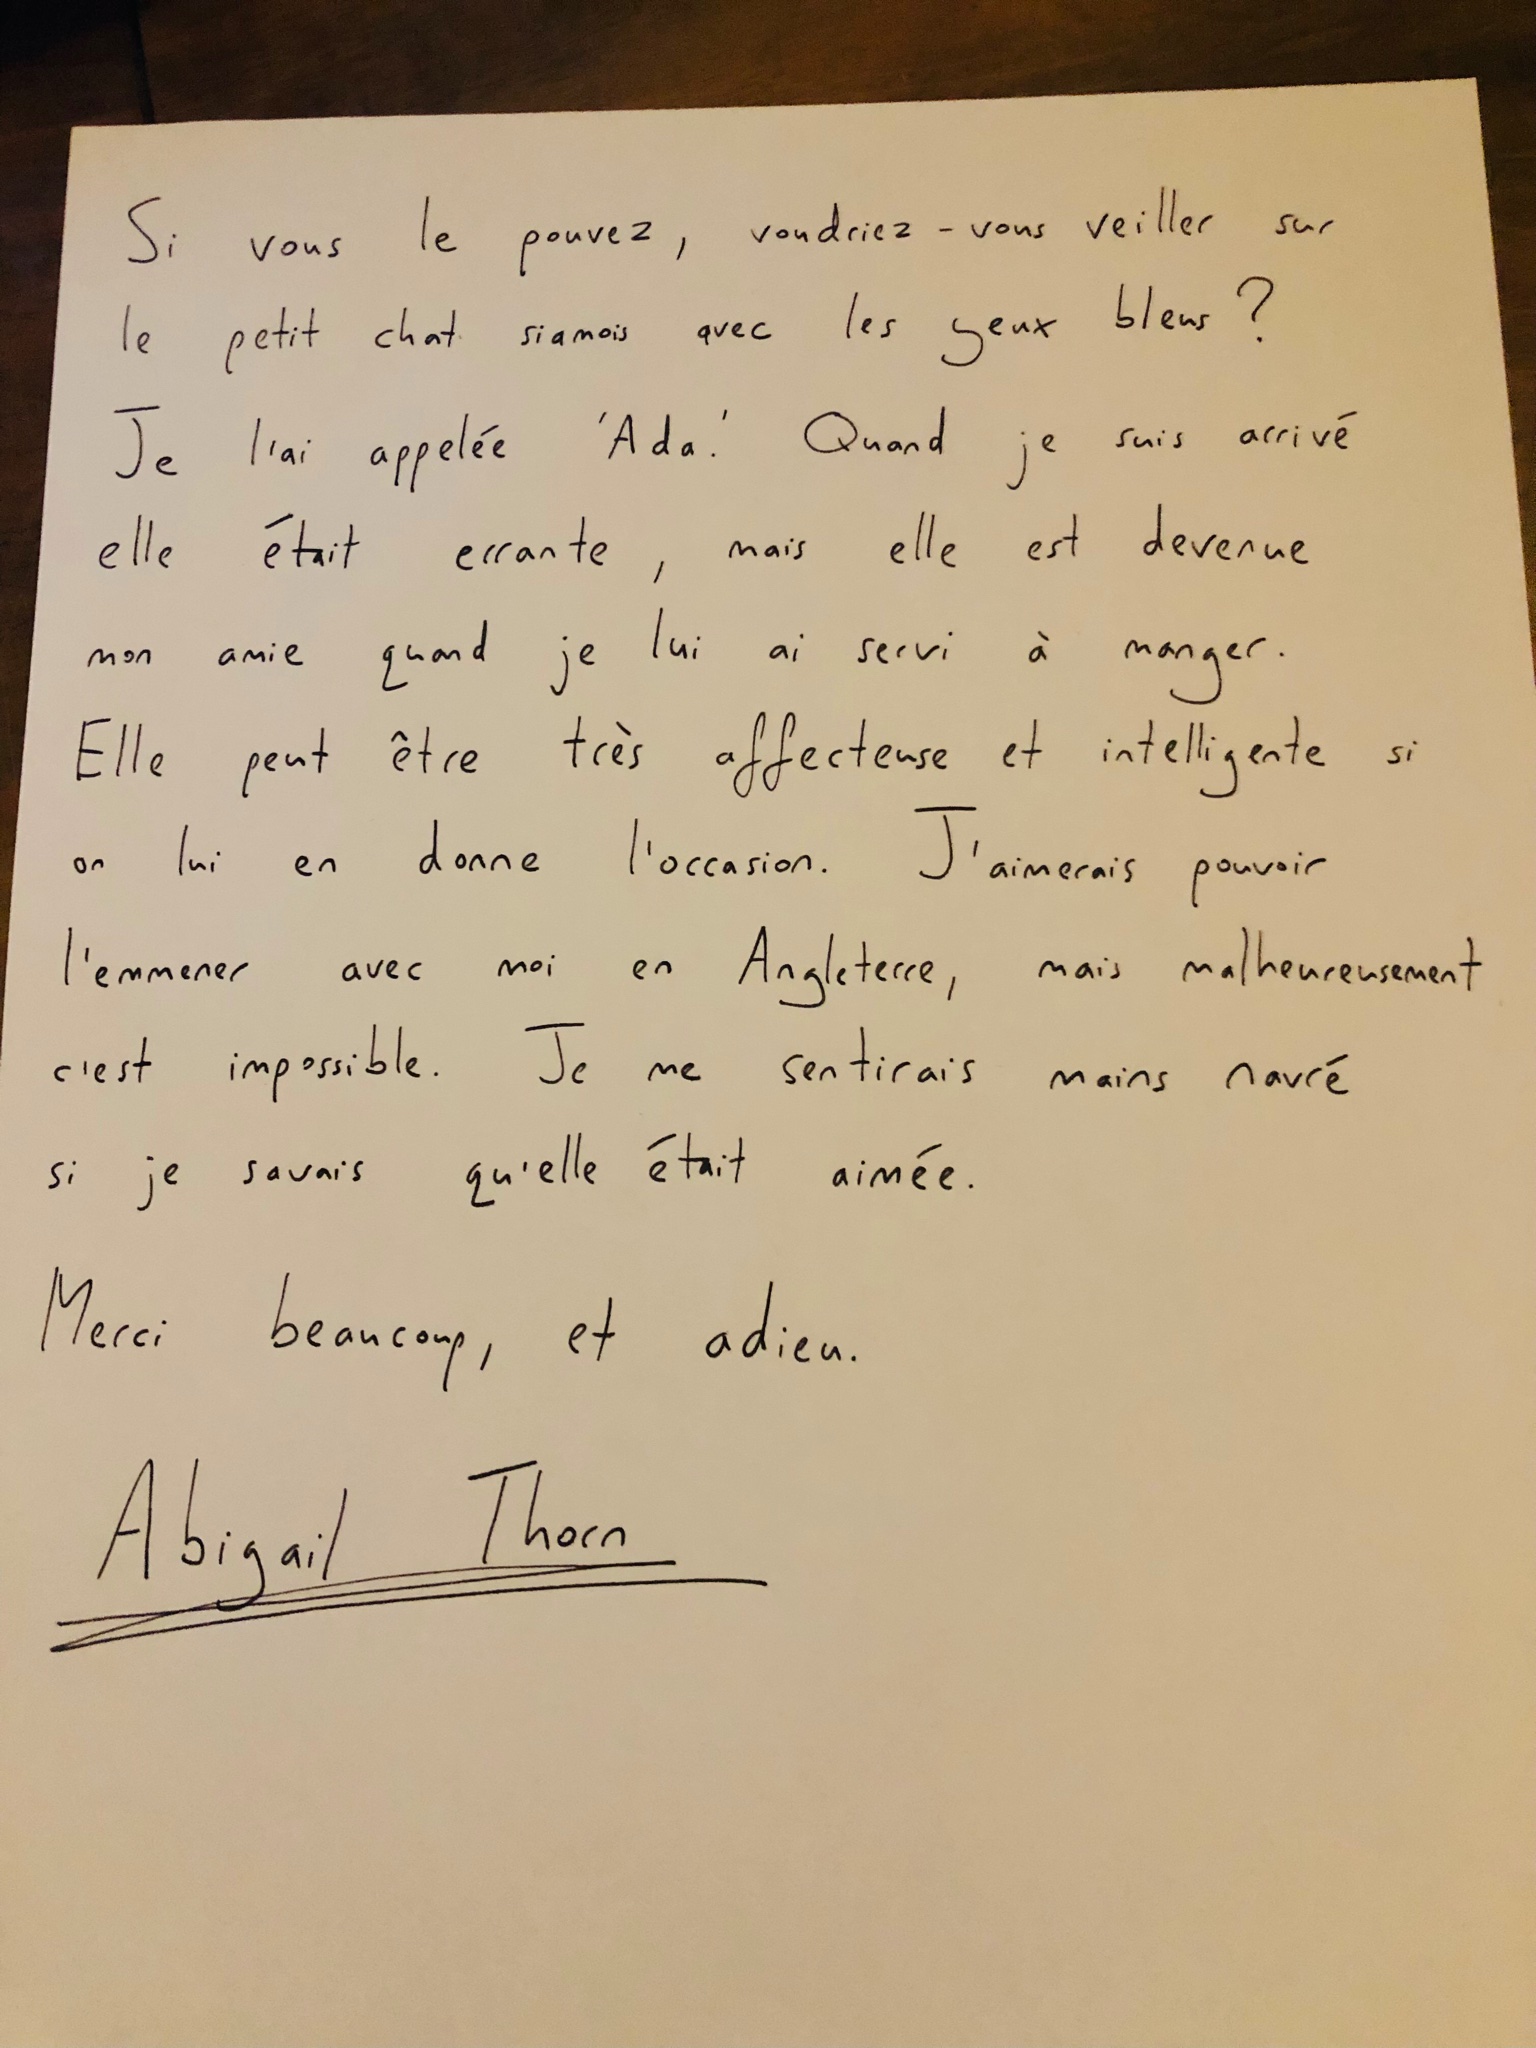 Si vous le pouvez, voudriez-vous veiller sur
le petit chat siamois avec les yeux bleus ?
Je l'ai appelée 'Ada.' Quand je suis arrivé
elle était errante, mais elle est devenue
mon amie quand je lui ai servi à manger.
Elle peut être très affecteuse et intelligente si
on lui en donne l'occasion. J'aimerais pouvoir
l'emmener avec moi en Angleterre, mais malheureusement
c'est impossible. Je me sentirais mains navré
si je savais qu'elle était aimée.
Merci beaucoup, et adieu.
Abigail Thorn